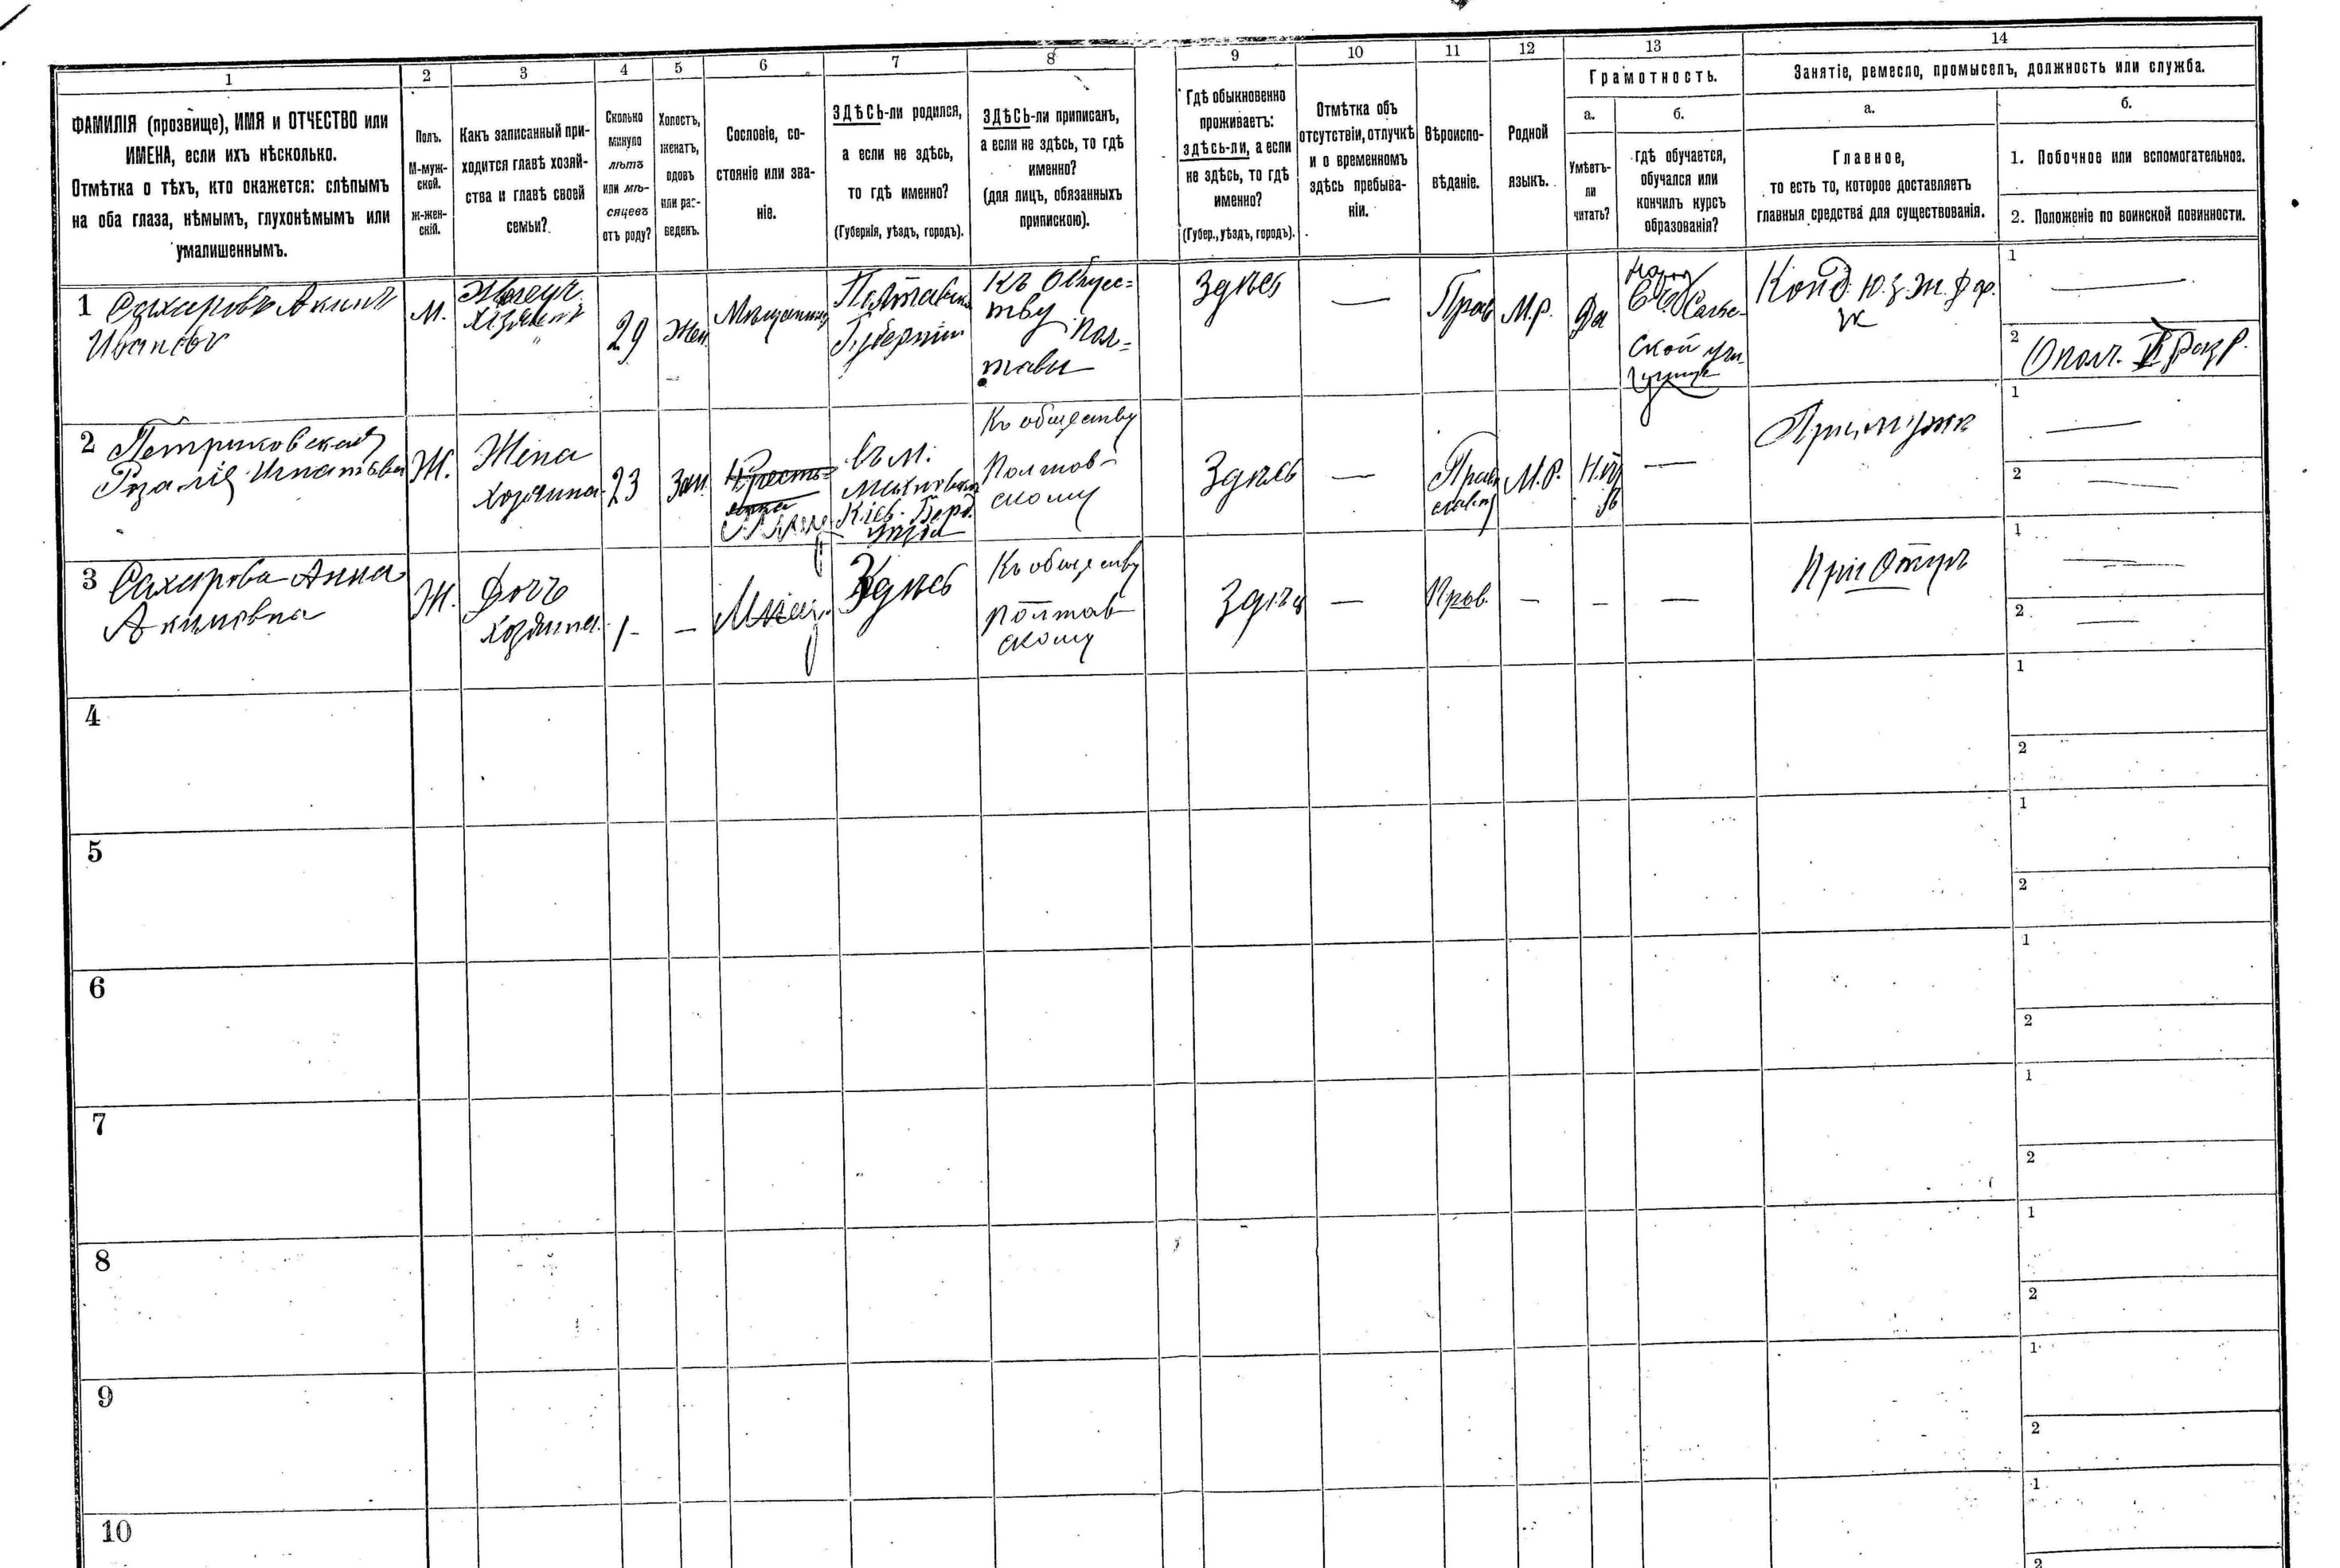 1
2
3
4
5
6
7
8
9
10
11
12
13
14
ФАМИЛІЯ (прозвище), ИМЯ и ОТЧЕСТВО или
ИМЕНА, если ихъ нѣсколько.
Отмѣтка о тѣхъ, кто окажется: слѣпымъ
на оба глаза, нѣмымъ, глухонѣмымъ или
умалишеннымъ.
Полъ.
М-муж-
ской.
ж-жен-
скій.
Какъ записанный при-
ходится главѣ хозяй-
ства и главѣ своей
семьи?
Сколько
минуло
лѣтъ
или мѣ-
сяцевъ
отъ роду?
Холостъ,
женатъ,
вдовъ
или раз-
веденъ.
Сословіе, со-
стояніе или зва-
ніе.
ЗДѢСЬ-ли родился,
а если не здѣсь,
то гдѣ именно?
(Губернія, уѣздъ, городъ).
ЗДѢСЬ-ли приписанъ,
а если не здѣсь, то гдѣ
именно?
(для лицъ, обязанныхъ
припискою).
Гдѣ обыкновенно
проживаетъ:
здѣсь-ли, а если
не здѣсь, то гдѣ
именно?
(Губер., уѣздъ, городъ).
Отмѣтка объ
отсутствіи, отлучкѣ
и о временномъ
здѣсь пребыва-
ніи.
Вѣроиспо-
вѣданіе.
Родной
языкъ.
Грамотность.
а.
Умѣетъ-
ли
читать?
б.
гдѣ обучается,
обучался или
кончилъ курсъ
образованія?
Занятіе, ремесло, промыселъ, должность или служба.
а.
Главное,
то есть то, которое доставляетъ
главныя средства для существованія.
б.
1. Побочное или вспомогательное.
2. Положеніе по воинской повинности.
1 Сахаровъ Акимъ
Ивановъ
М.
29
Жен.
Мѣщанинъ
Полтавск.
Губерніи
Къ Общес=
тву
Пол=
тавы
Здѣсь
—
Прав
М.Р.
Да
ской
Конд. Ю.З.Ж.Дор.
1 —
2 Опол. II Разр.
2 Петриковская
Розалія Игнатьева
Ж.
Жена
хозяина
23
Зам.
Кресть=
янка
въ м.
Кіев. Берд.
уѣзда
Къ обществу
Полтов-
скому
Здѣсь
—
Прав
славн
М.Р.
Нѣтъ
—
При мужѣ
1 —
2 —
3 Сахарова Анна
Акимовна
Ж.
Дочь
хозяина
1
—
Мѣщ.
Здѣсь
Къ обществу
Полтав-
скому
Здѣсь
—
Прав.
—
—
—
При Отцѣ
1 —
2 —
4
1
2
5
1
2
6
1
2
7
1
2
8
1
2
9
1
2
10
1
2